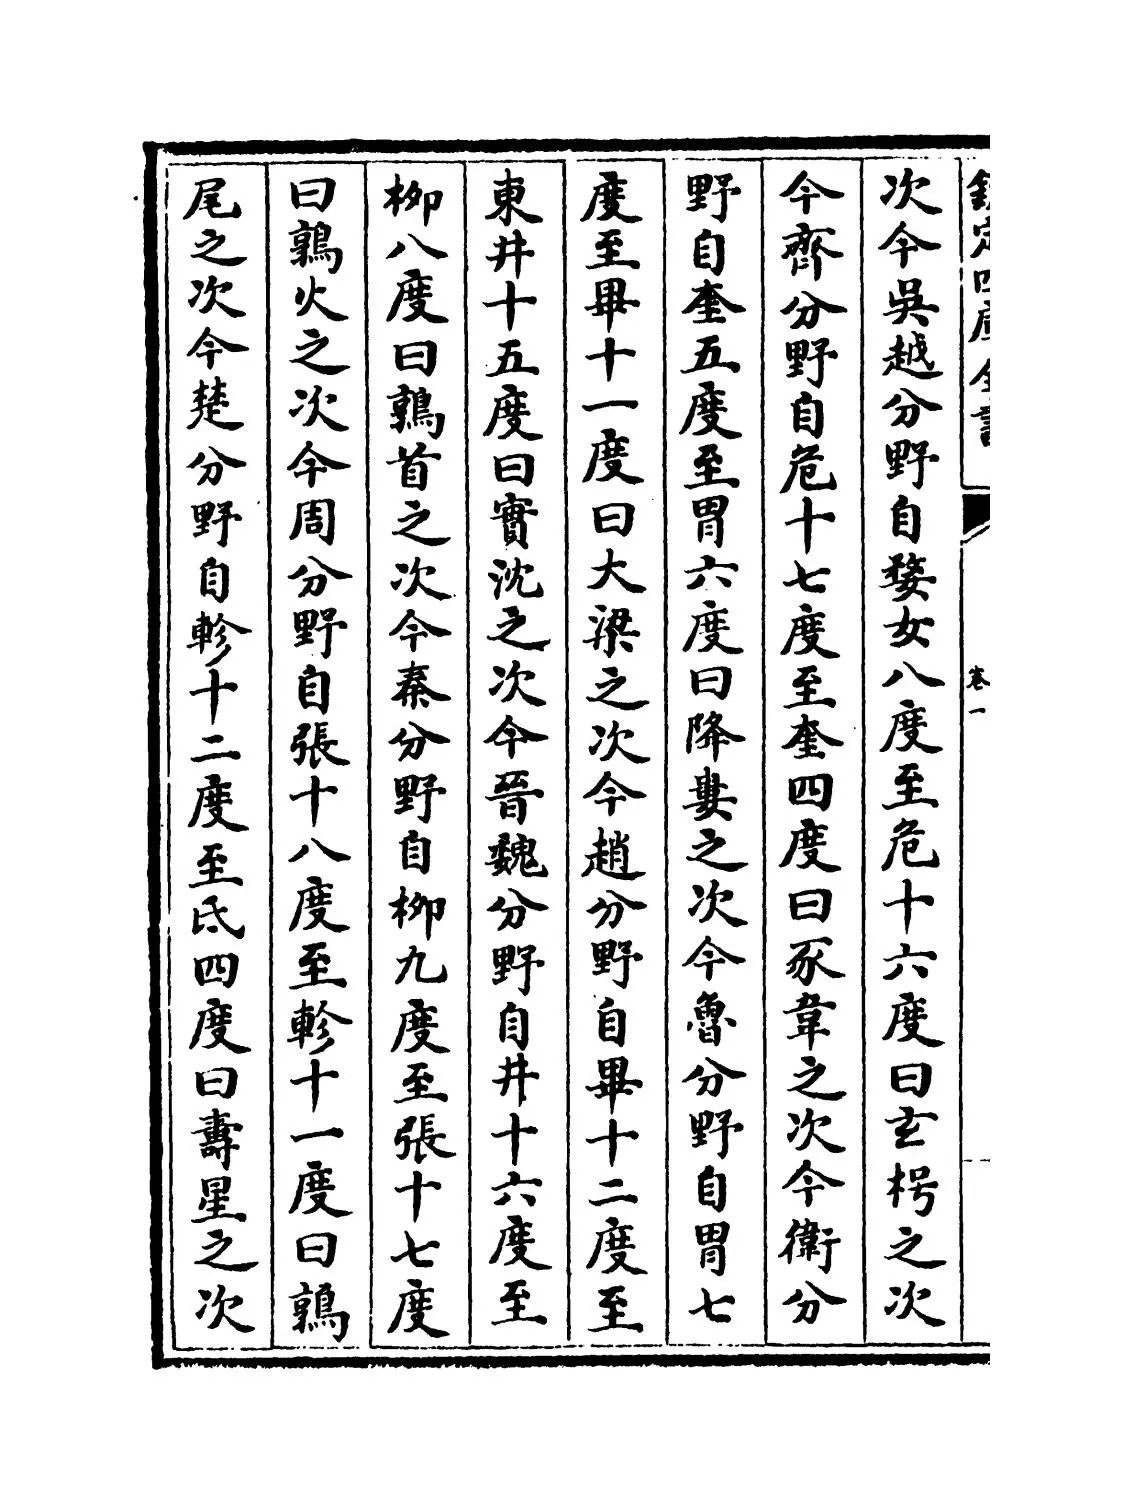 欽定四庫全書
卷一
次今吳越分野自婺女八度至危十六度曰玄枵之次
今齊分野自危十七度至奎四度曰豕韋之次今衛分
野自奎五度至胃六度曰降婁之次今魯分野自胃七
度至畢十一度曰大梁之次今趙分野自畢十二度至
東井十五度曰實沈之次今晉魏分野自井十六度至
柳八度曰鶉首之次今秦分野自柳九度至張十七度
曰鶉火之次今周分野自張十八度至軫十一度曰鶉
尾之次今楚分野自軫十二度至氐四度曰壽星之次